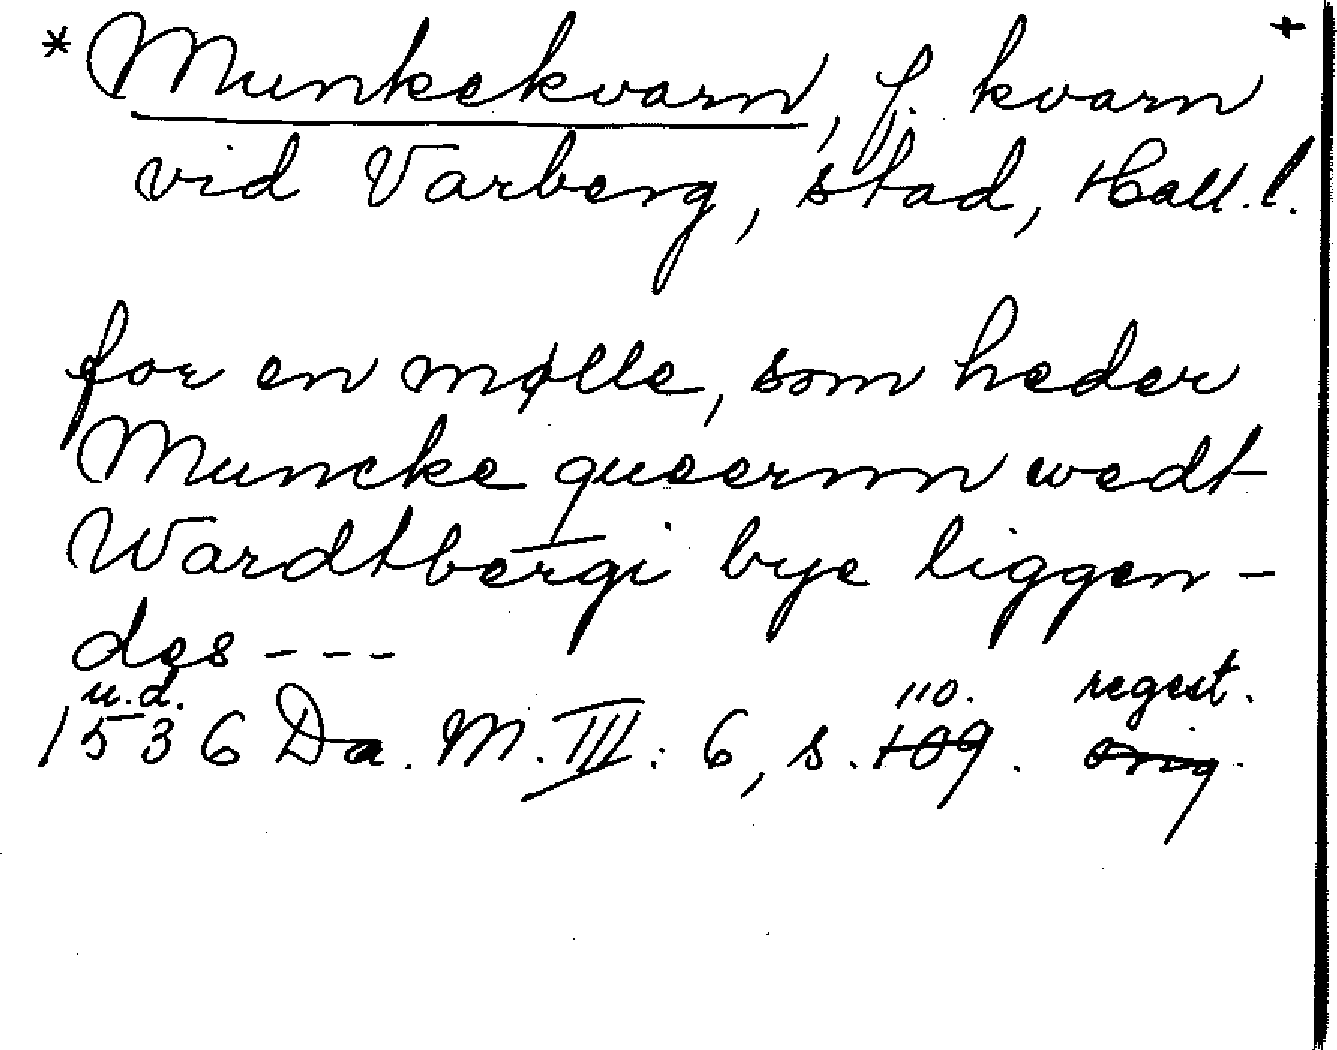 * Munkekvarn, f. kvarn +
vid Varberg, stad, Hall. l.
for en mølle, som heder
Muncke queernn wedt
Wardtbergi bye liggen-
des - - -
u.d. 110. regest.
1536 Da. M. III: 6, s. 109. orig.